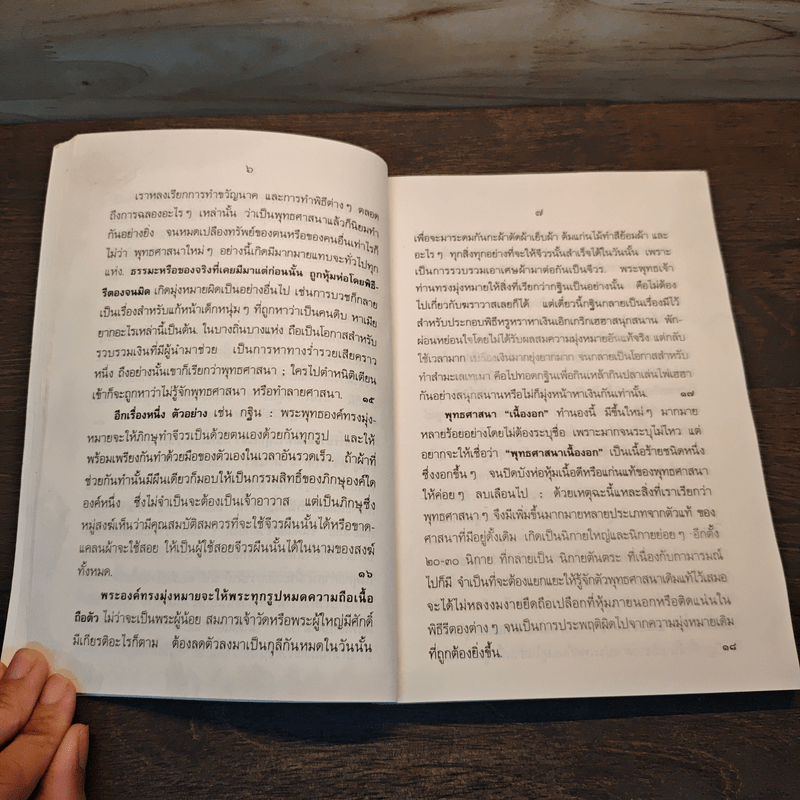 ๖
เราหลงเรียกการทำขวัญนาค และการทำพิธีต่างๆ ตลอด
ถึงการฉลองอะไรๆ เหล่านั้น ว่าเป็นพุทธศาสนาแล้วก็นิยมทำ
กันอย่างยิ่ง จนหมดเปลืองทรัพย์ของตนหรือของคนอื่นเท่าไรก็
ไม่ว่า พุทธศาสนาใหม่ๆ อย่างนี้เกิดมีมากมายแทบจะทั่วไปทุก
แห่ง. ธรรมะหรือของจริงที่เคยมีมาแต่ก่อนนั้น ถูกหุ้มห่อโดยพิธี-
รีตองจนมิด เกิดมุ่งหมายผิดเป็นอย่างอื่นไป เช่นการบวชก็กลาย
เป็นเรื่องสำหรับแก้หน้าเด็กหนุ่มๆ ที่ถูกหาว่าเป็นคนดิบ หาเมีย
ยากอะไรเหล่านี้เป็นต้น. ในบางถิ่นบางแห่ง ถือเป็นโอกาสสำหรับ
รวบรวมเงินที่มีผู้นำมาช่วย เป็นการหาทางร่ำรวยเสียคราว
หนึ่ง ถึงอย่างนั้นเขาก็เรียกว่าพุทธศาสนา ; ใครไปตำหนิติเตียน
เข้าก็จะถูกหาว่าไม่รู้จักพุทธศาสนา หรือทำลายศาสนา. ๑๕
อีกเรื่องหนึ่ง ตัวอย่าง เช่น กฐิน : พระพุทธองค์ทรงมุ่ง-
หมายจะให้ภิกษุทำจีวรเป็นด้วยตนเองด้วยกันทุกรูป และให้
พร้อมเพรียงกันทำด้วยมือของตัวเองในเวลาอันรวดเร็ว. ถ้าผ้าที่
ช่วยกันทำนั้นมีผืนเดียวก็มอบให้เป็นกรรมสิทธิ์ของภิกษุองค์ใด
องค์หนึ่ง ซึ่งไม่จำเป็นจะต้องเป็นเจ้าอาวาส แต่เป็นภิกษุซึ่ง
หมู่สงฆ์เห็นว่ามีคุณสมบัติสมควรที่จะใช้จีวรผืนนั้นได้หรือขาด-
แคลนผ้าจะใช้สอย ให้เป็นผู้ใช้สอยจีวรผืนนั้นได้ในนามของสงฆ์
ทั้งหมด. ๑๖
พระองค์ทรงมุ่งหมายจะให้พระทุกรูปหมดความถือเนื้อ
ถือตัว ไม่ว่าจะเป็นพระผู้น้อย สมภารเจ้าวัดหรือพระผู้ใหญ่มีศักดิ์
มีเกียรติอะไรก็ตาม ต้องลดตัวลงมาเป็นกุลีกันหมดในวันนั้น
๗
เพื่อจะมาระดมกันกะผ้าตัดผ้าเย็บผ้า ต้มแก่นไม้ทำสีย้อมผ้า และ
อะไรๆ ทุกสิ่งทุกอย่างที่จะให้จีวรนั้นสำเร็จได้ในวันนั้น เพราะ
เป็นการรวบรวมเอาเศษผ้ามาต่อกันเป็นจีวร. พระพุทธเจ้า
ท่านทรงมุ่งหมายให้สิ่งที่เรียกว่ากฐินเป็นอย่างนั้น คือไม่ต้อง
ไปเกี่ยวกับฆราวาสเลยก็ได้ แต่เดี๋ยวนี้กฐินกลายเป็นเรื่องมีไว้
สำหรับประกอบพิธีหรูหราหาเงินเอิกเกริกเฮฮาสนุกสนาน พัก-
ผ่อนหย่อนใจโดยไม่ได้รับผลสมความมุ่งหมายอันแท้จริง แต่กลับ
ใช้เวลามาก เปลืองเงินมากยุ่งยากมาก จนกลายเป็นโอกาสสำหรับ
ทำสำมะเลเทเมา คือไปทอดกฐินเพื่อกินเหล้ากินปลาเล่นไพ่เฮฮา
กันอย่างสนุกสนานหรือไม่ก็มุ่งหน้าหาเงินกันเท่านั้น. ๑๗
พุทธศาสนา "เนื้องอก" ทำนองนี้ มีขึ้นใหม่ๆ มากมาย
หลายร้อยอย่างโดยไม่ต้องระบุชื่อ เพราะมากจนระบุไม่ไหว แต่
อยากจะให้เชื่อว่า "พุทธศาสนาเนื้องอก" เป็นเนื้อร้ายชนิดหนึ่ง
ซึ่งงอกขึ้นๆ จนปิดบังห่อหุ้มเนื้อดีหรือแก่นแท้ของพุทธศาสนา
ให้ค่อยๆ ลบเลือนไป : ด้วยเหตุฉะนี้แหละสิ่งที่เราเรียกว่า
พุทธศาสนาๆ จึงมีเพิ่มขึ้นมากมายหลายประเภทจากตัวแท้ ของ
ศาสนาที่มีอยู่ดั้งเดิม เกิดเป็นนิกายใหญ่และนิกายย่อยๆ อีกตั้ง
๒๐-๓๐ นิกาย ที่กลายเป็น นิกายตันตระ ที่เนื่องกับกามารมณ์
ไปก็มี จำเป็นที่จะต้องแยกแยะให้รู้จักตัวพุทธศาสนาเดิมแท้ไว้เสมอ
จะได้ไม่หลงงมงายยึดถือเปลือกที่หุ้มภายนอกหรือติดแน่นใน
พิธีรีตองต่างๆ จนเป็นการประพฤติผิดไปจากความมุ่งหมายเดิม
ที่ถูกต้องยิ่งขึ้น. ๑๘